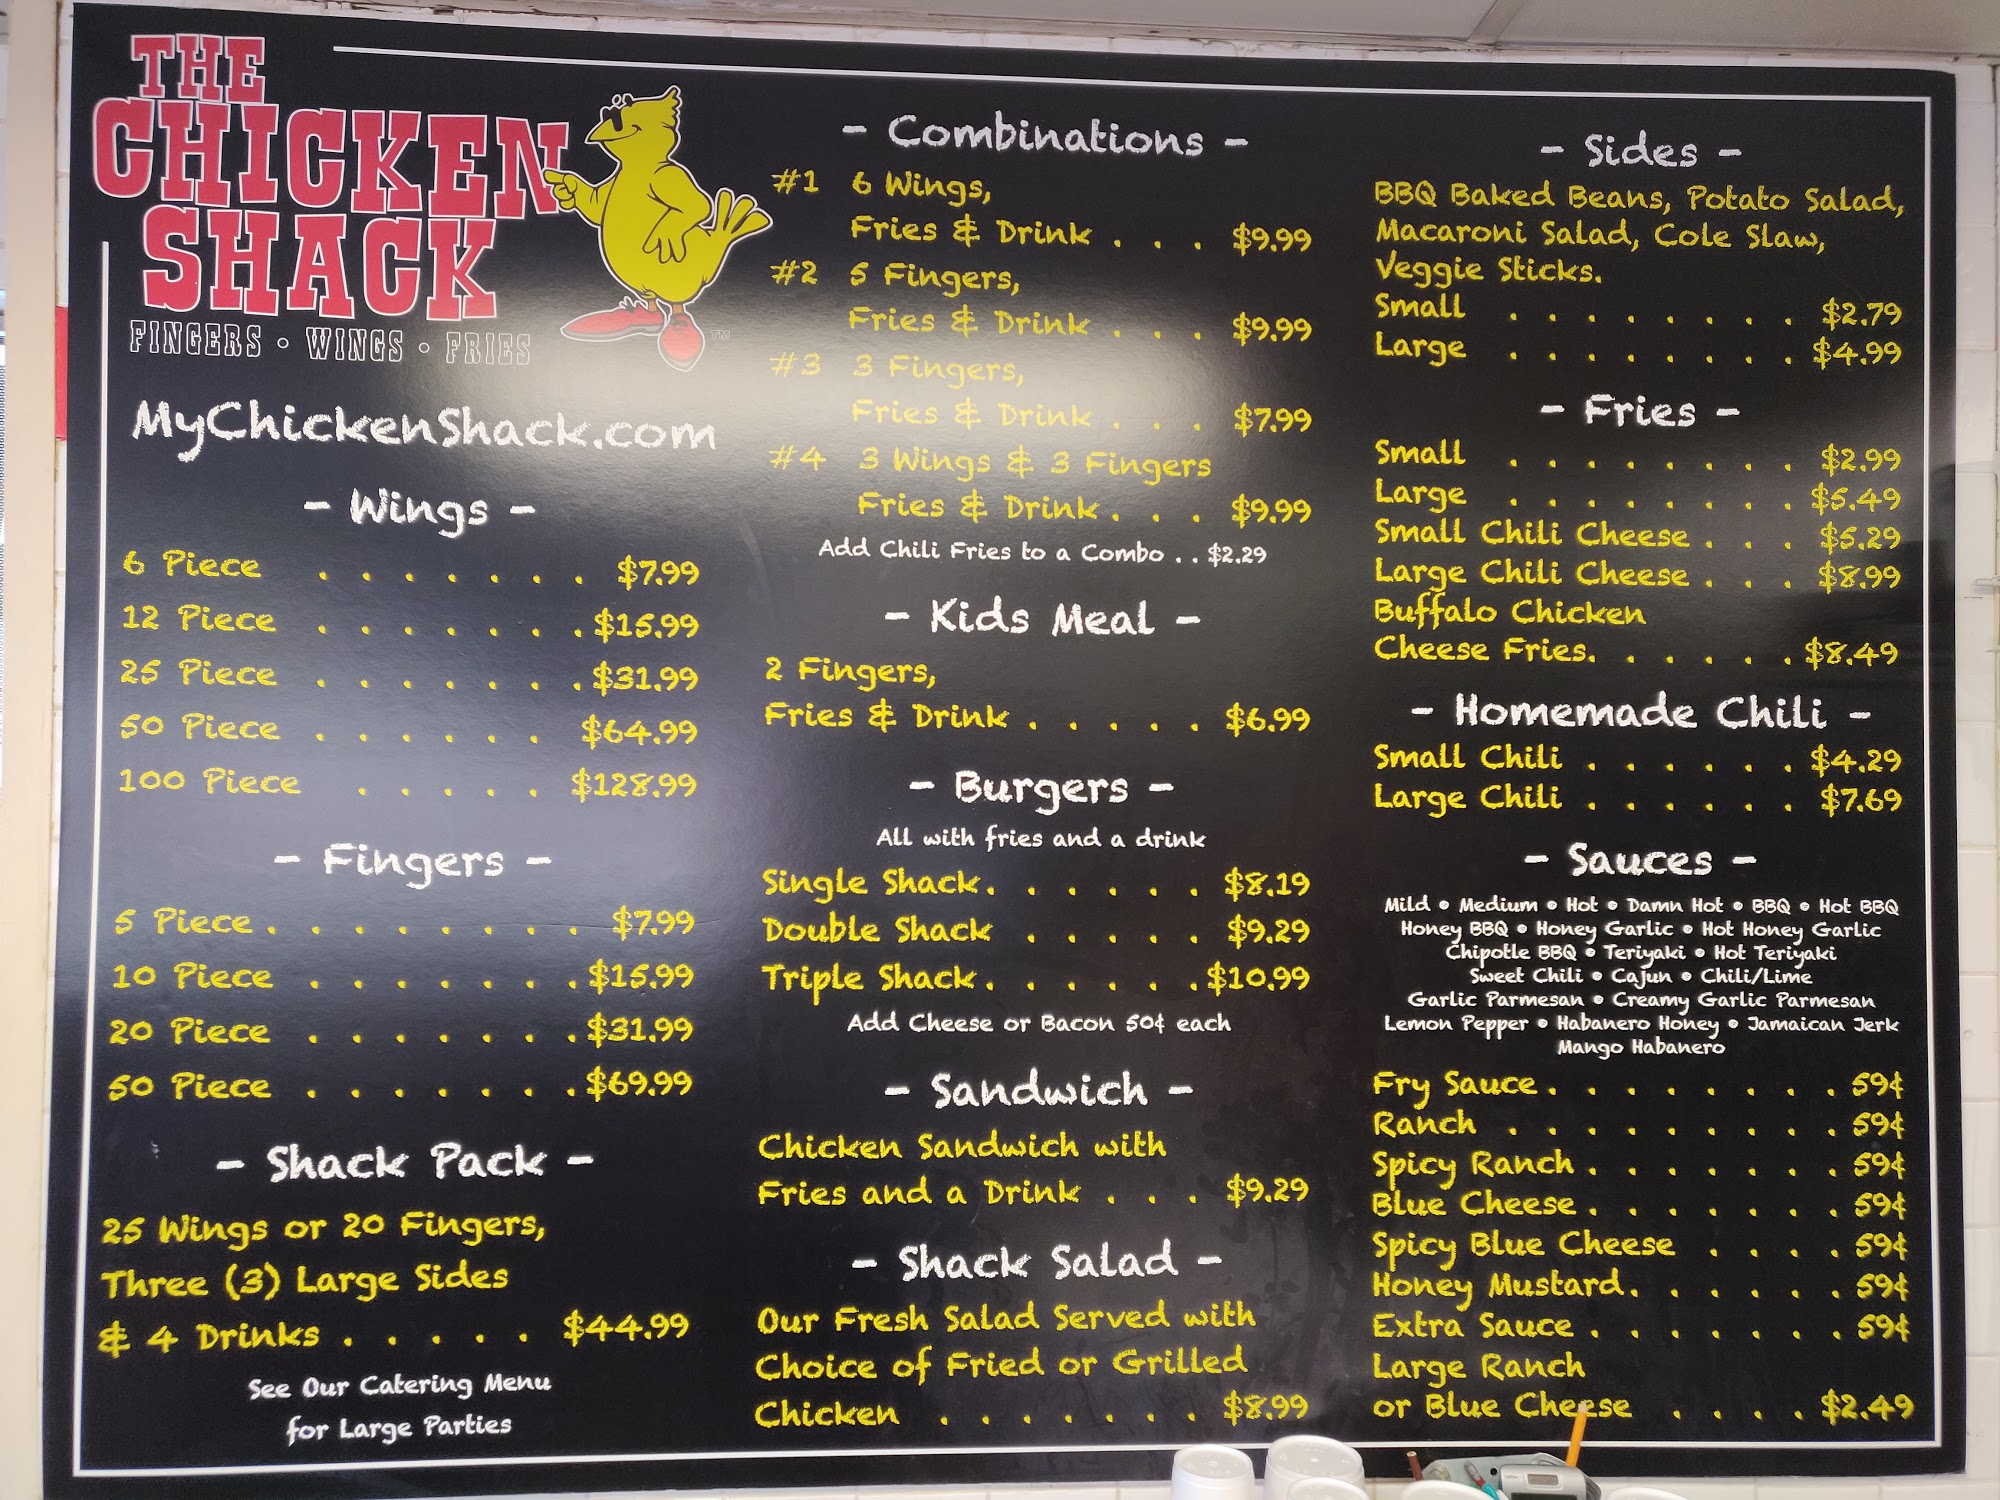 THE
CHICKEN
SHACK
FINGERS • WINGS • FRIES
TM
MyChickenShack.com
- Wings -
6 Piece . . . . . . . $7.99
12 Piece . . . . . . . $15.99
25 Piece . . . . . . . $31.99
50 Piece . . . . . . $64.99
100 Piece . . . . . $128.99
- Fingers -
5 Piece . . . . . . . . $7.99
10 Piece . . . . . . . $15.99
20 Piece . . . . . . . $31.99
50 Piece . . . . . . . $69.99
- Shack Pack -
25 Wings or 20 Fingers,
Three (3) Large Sides
& 4 Drinks . . . . . $44.99
See Our Catering Menu
for Large Parties
- Combinations -
#1 6 Wings,
Fries & Drink . . . $9.99
#2 5 Fingers,
Fries & Drink . . . $9.99
#3 3 Fingers,
Fries & Drink . . . $7.99
#4 3 Wings & 3 Fingers
Fries & Drink . . . $9.99
Add Chili Fries to a Combo . . $2.29
- Kids Meal -
2 Fingers,
Fries & Drink . . . . . $6.99
- Burgers -
All with fries and a drink
Single Shack . . . . . . $8.19
Double Shack . . . . . $9.29
Triple Shack . . . . . . $10.99
Add Cheese or Bacon 50¢ each
- Sandwich -
Chicken Sandwich with
Fries and a Drink . . . $9.29
- Shack Salad -
Our Fresh Salad Served with
Choice of Fried or Grilled
Chicken . . . . . . . $8.99
- Sides -
BBQ Baked Beans, Potato Salad,
Macaroni Salad, Cole Slaw,
Veggie Sticks.
Small . . . . . . . . $2.79
Large . . . . . . . . $4.99
- Fries -
Small . . . . . . . . $2.99
Large . . . . . . . . $5.49
Small Chili Cheese . . . $5.29
Large Chili Cheese . . . $8.99
Buffalo Chicken
Cheese Fries . . . . . . $8.49
- Homemade Chili -
Small Chili . . . . . . $4.29
Large Chili . . . . . . $7.69
- Sauces -
Mild • Medium • Hot • Damn Hot • BBQ • Hot BBQ
Honey BBQ • Honey Garlic • Hot Honey Garlic
Chipotle BBQ • Teriyaki • Hot Teriyaki
Sweet Chili • Cajun • Chili/Lime
Garlic Parmesan • Creamy Garlic Parmesan
Lemon Pepper • Habanero Honey • Jamaican Jerk
Mango Habanero
Fry Sauce . . . . . . . . 59¢
Ranch . . . . . . . . . 59¢
Spicy Ranch . . . . . . . 59¢
Blue Cheese . . . . . . . 59¢
Spicy Blue Cheese . . . . 59¢
Honey Mustard . . . . . . 59¢
Extra Sauce . . . . . . . 59¢
Large Ranch
or Blue Cheese . . . . $2.49